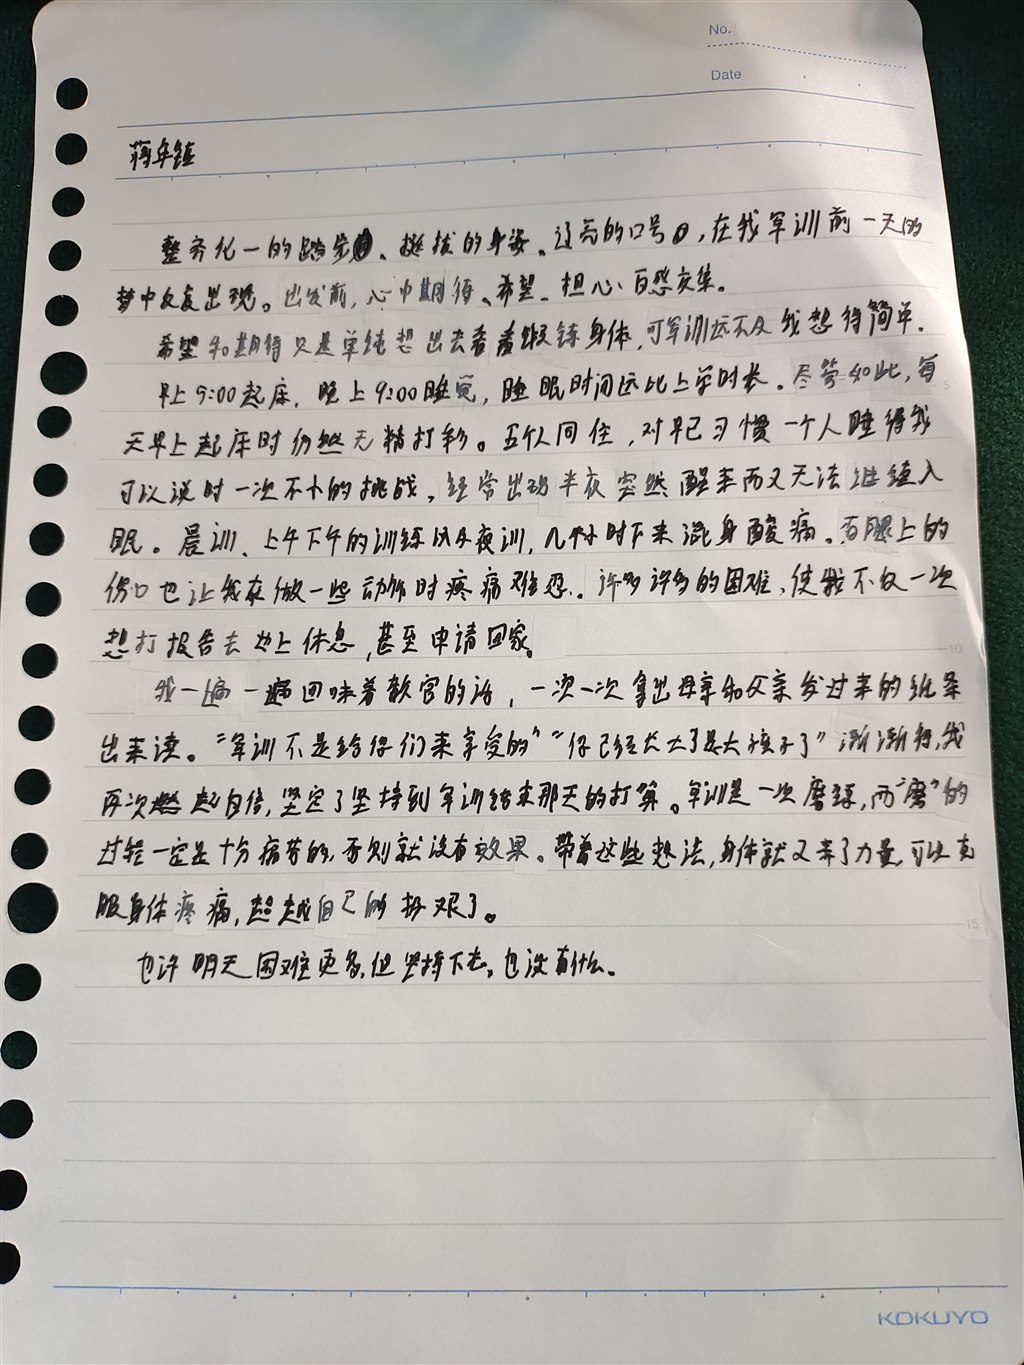 No.
Date
整齐化一的踏步、挺拔的身姿、辽亮的口号,在我军训前一天的
梦中反复出现。出发前,心中期待、希望、担心百感交集。
希望和期待只是单纯想出去看看锻练身体,可军训远不及我想得简单.
早上9:00起床,晚上9:00睡觉,睡眠时间远比上学时长.尽管如此,每
天早上起床时仍然无精打彩。五个人同住,对早已习惯一个人睡得我
可以说时一次不小的挑战,经常出现半夜突然醒来而又无法继续入
眠。晨训、上午下午的训练以及夜训,几个小时下来混身酸痛。右腿上的
伤口也让我在做一些动作时疼痛难忍.许多许多的困难,使我不仅一次
想打报告去边上休息,甚至申请回家。
我一遍一遍回味着教官的话,一次一次拿出母亲和父亲发过来的纸条
出来读。“军训不是给你们来享受的”“你已经长大了是大孩子了”渐渐得,我
再次燃起自信,坚定了坚持到军训结束那天的打算。军训是一次磨练,而“磨”的
过程一定是十分痛苦的,否则就没有效果。带着这些想法,身体就又来了力量,可以克
服身体疼痛,超越自己的
也许明天困难更多,但坚持下去,也没有什么.
KOKUYO